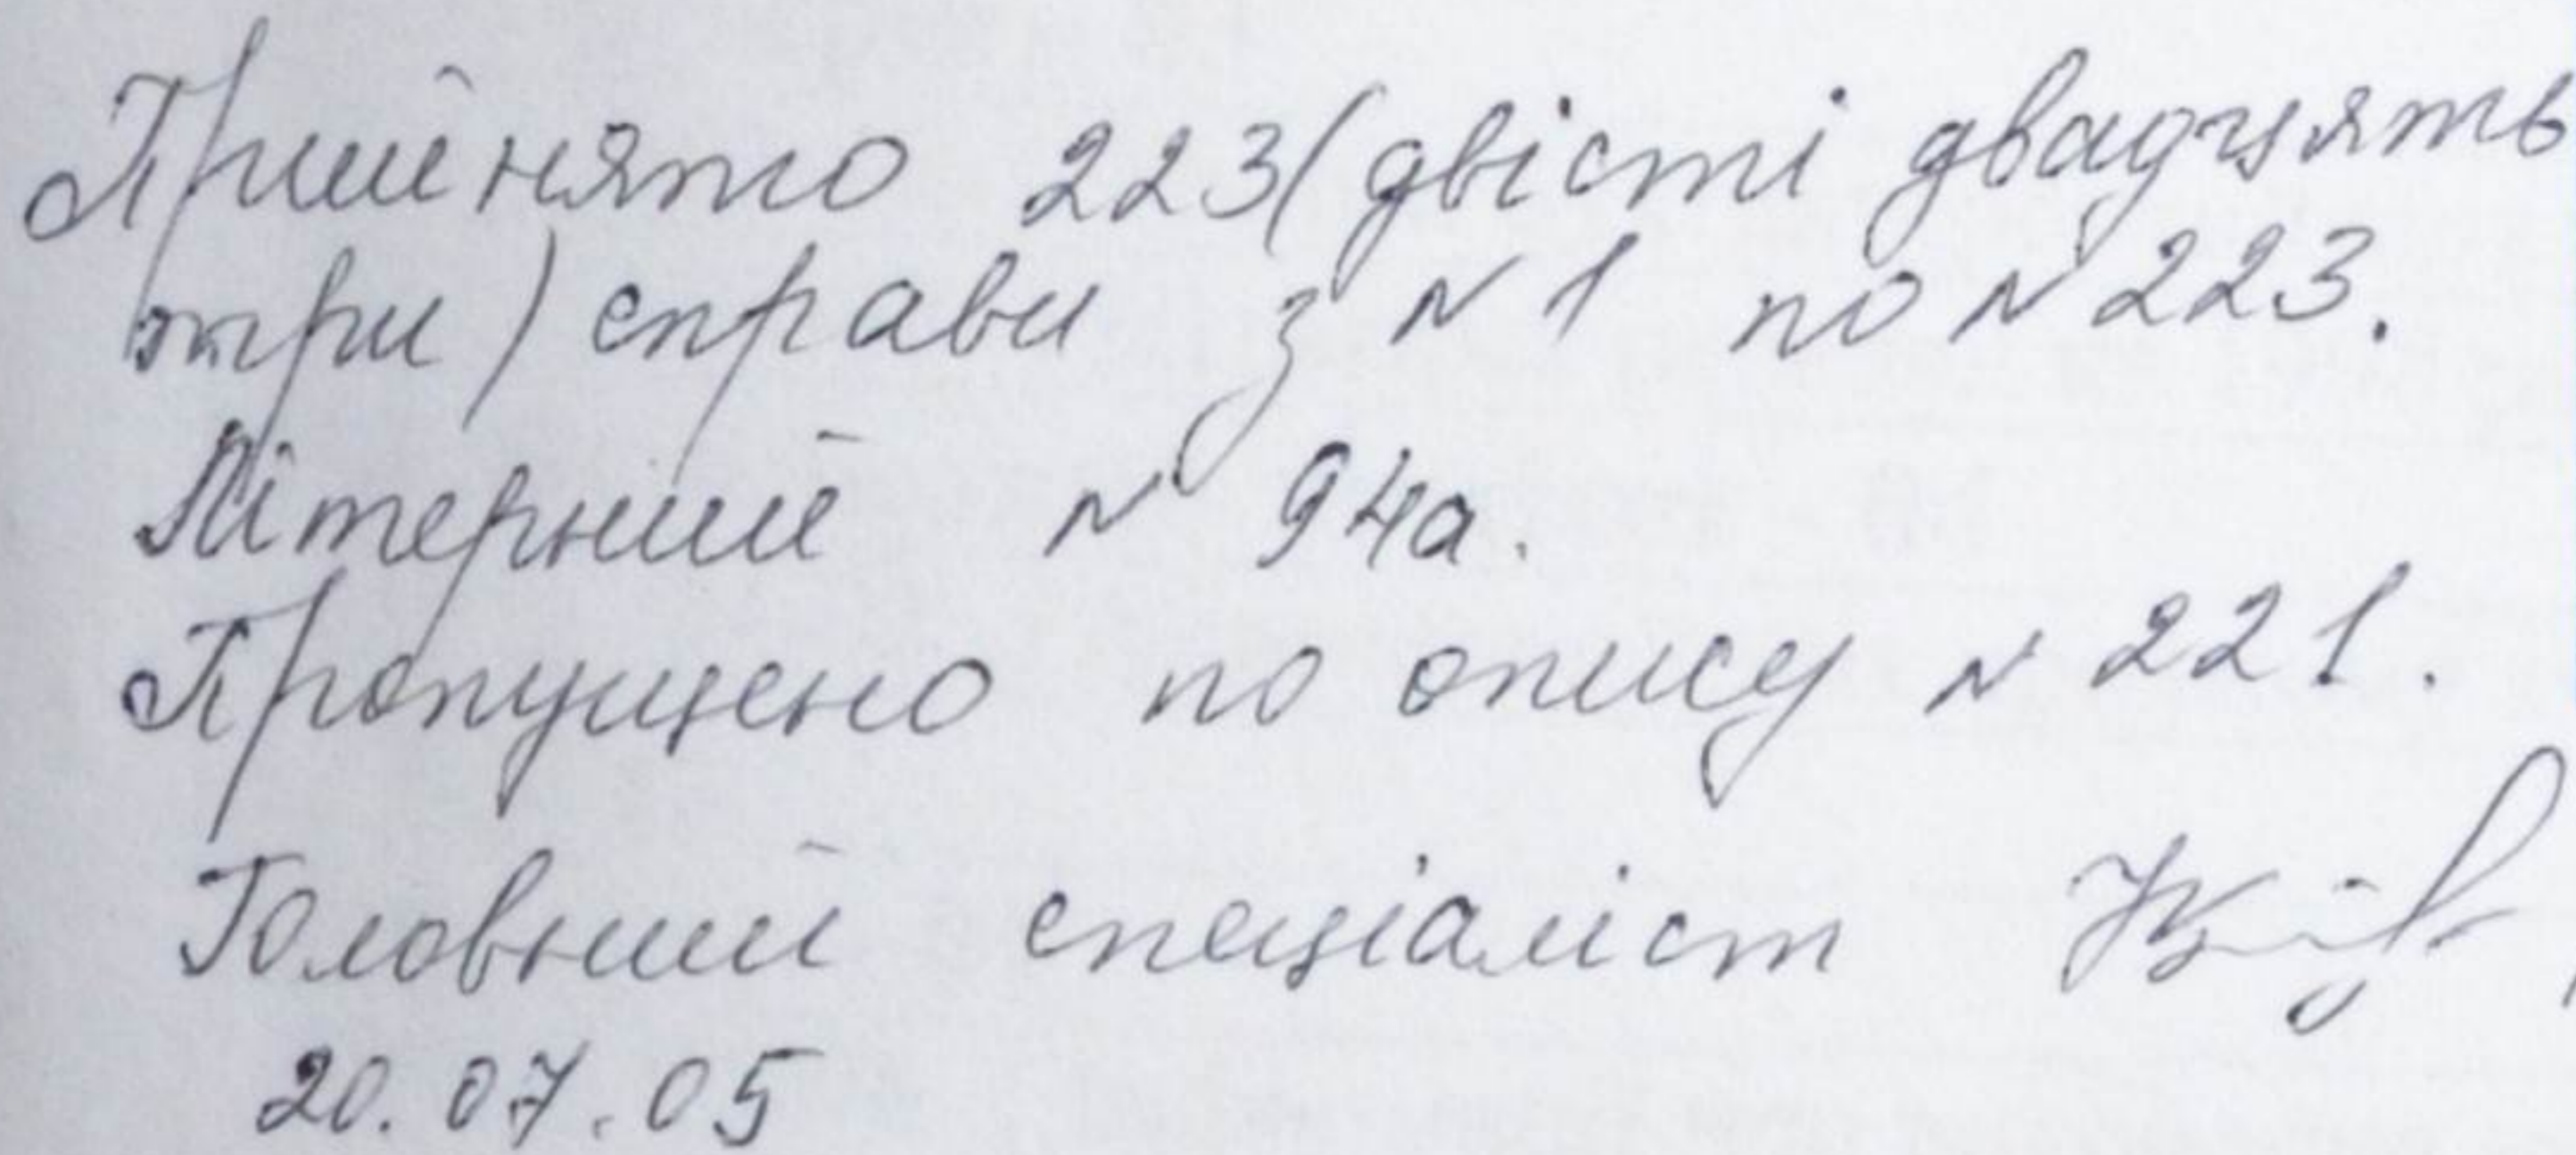 Прийнято 223 (двісті двадцять
три) справи з № 1 по № 223.
Літерний № 94а.
Пропущено по опису № 221.
Головний спеціаліст
20.07.05